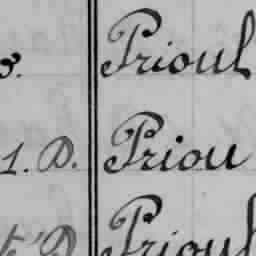 8. Prioul
1. D. Priou
D Prioul